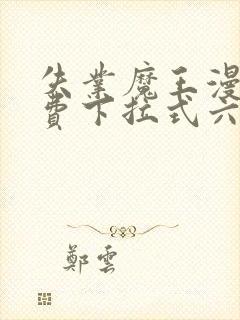 失業魔王漫
費下拉式六
鄭雲